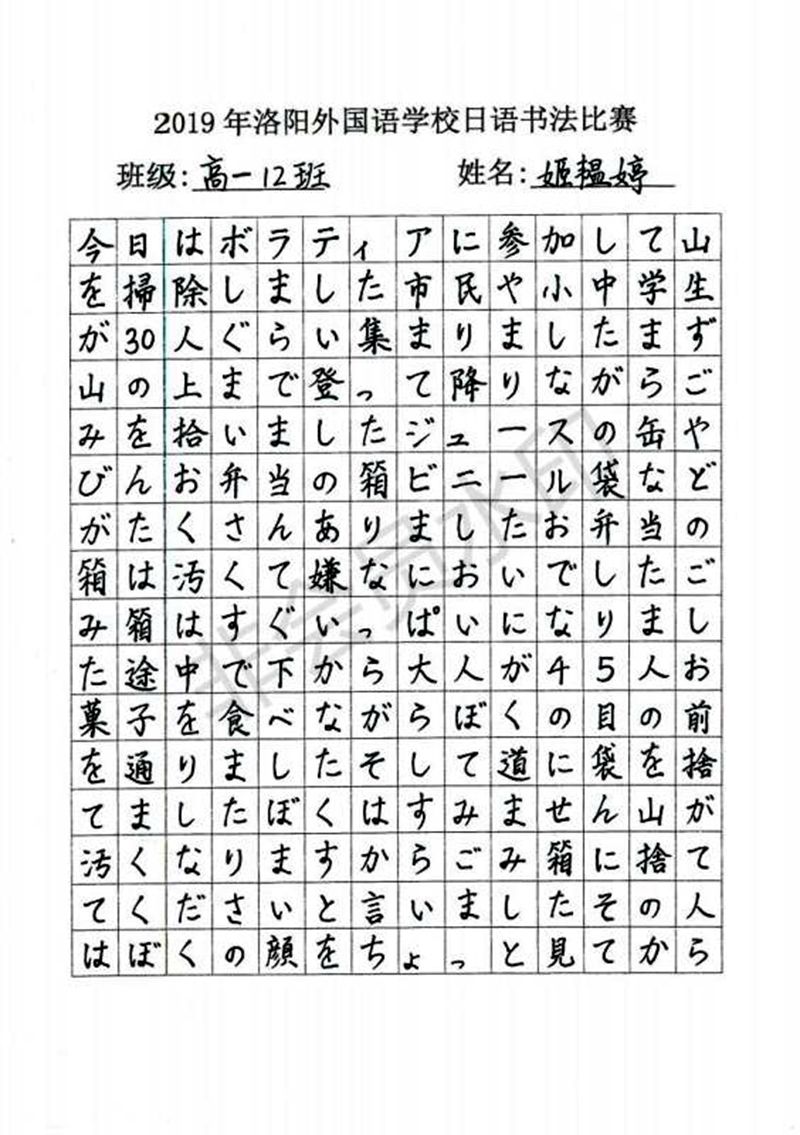 2019年洛阳外国语学校日语书法比赛
班级:高一12班 姓名:姬韫婷
今日はボラティィアに参加して山
を掃除しました市民や小中学生
が30人ぐらい集まりましたまず
山の上まで登って降りながらご
みを拾いましたジュースの缶や
びんお弁当の箱ビニール袋など
がたくさんありましたお弁当の
箱は汚くて嫌なにおいでしたご
み箱はすぐいっぱいになりまし
た途中で下から大人が45人お
菓子を食べながらぼくの目の前
を通りましたそして道に袋を捨
てましたぼくはすみません山が
汚くなりますからごみ箱に捨て
てくださいと言いましたその人
はぼくの顔をちょっと見てから
非会员水印